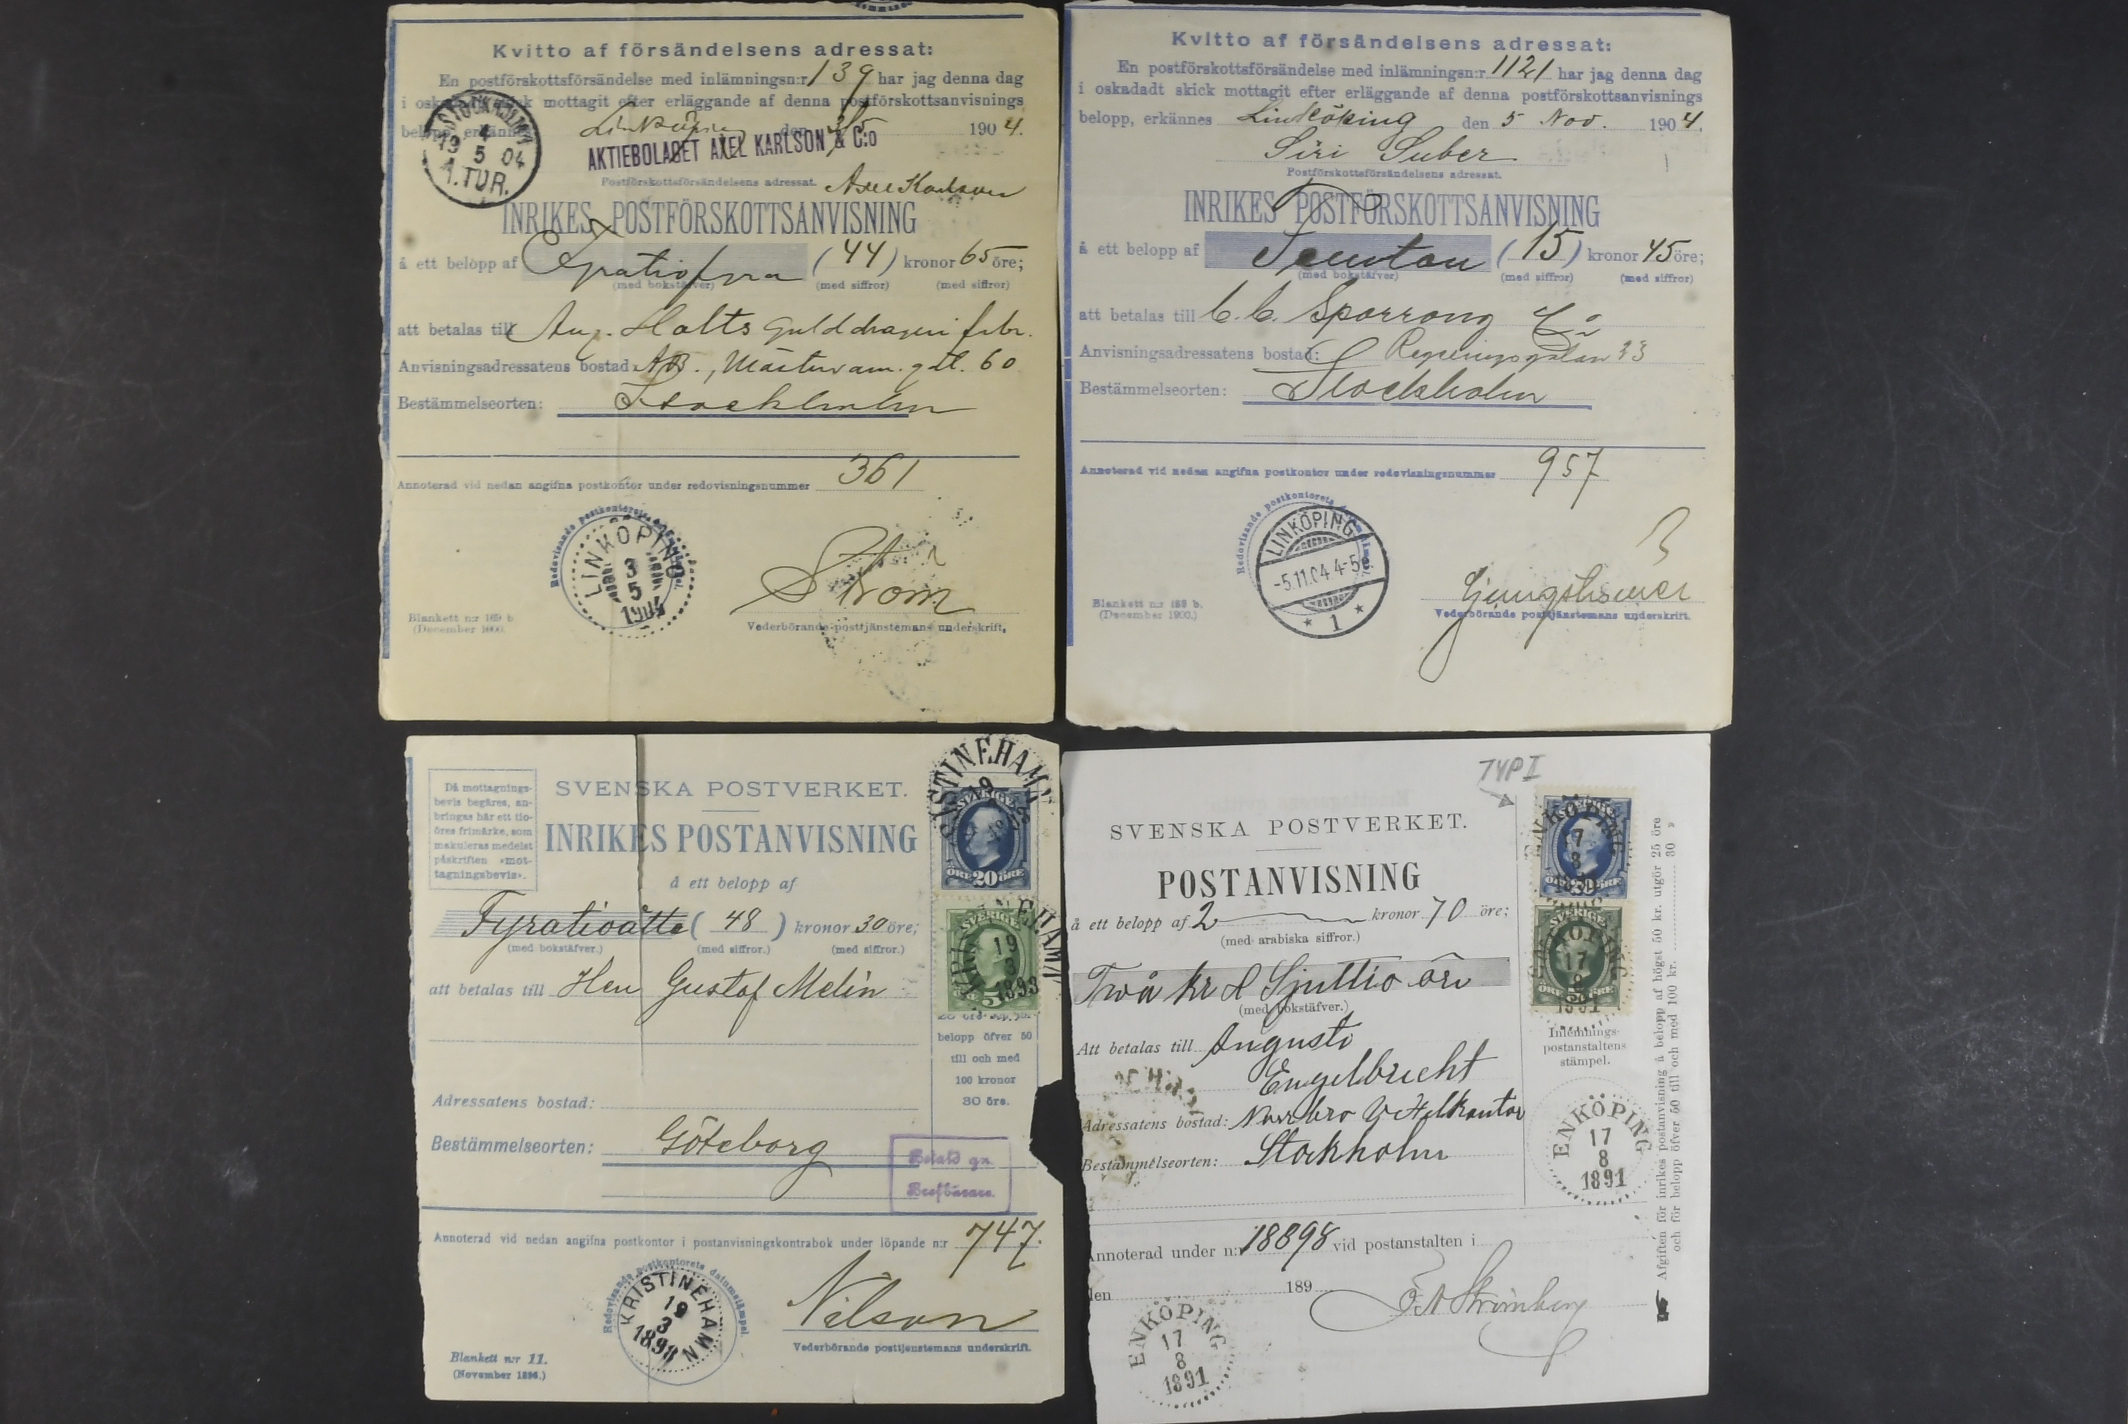 Kvitto af försändelsens adressat:
En postförskottsförsändelse med inlämningsn:r 139 har jag denna dag
i oskadadt skick mottagit efter erläggande af denna postförskottsanvisnings
belopp, erkännes Linköping den 3/5 1904.
AKTIEBOLAGET AXEL KARLSON & C:o
Postförskottsförsändelsens adressat. Axel Karlson
STOCKHOLM
4
19 5 04
1.TUR.
INRIKES POSTFÖRSKOTTSANVISNING
å ett belopp af Fyratiofyra (44) kronor 65 öre;
(med bokstäfver) (med siffror) (med siffror)
att betalas till Aug. Holts Gulddrageri fabr.
Anvisningsadressatens bostad: AB., Mästersam. gat. 60
Bestämmelseorten: Stockholm
Annoterad vid nedan angifna postkontor under redovisningsnummer 361
Redovisande postkontorets
LINKÖPING
3
5
1904
Strom
Vederbörande posttjänstemans underskrift.
Blankett n:r 169 b.
(December 1900.)
Kvitto af försändelsens adressat:
En postförskottsförsändelse med inlämningsn:r 1121 har jag denna dag
i oskadadt skick mottagit efter erläggande af denna postförskottsanvisnings
belopp, erkännes Linköping den 5 Nov. 1904.
Siri Suber
Postförskottsförsändelsens adressat.
INRIKES POSTFÖRSKOTTSANVISNING
å ett belopp af Femton (15) kronor 45 öre;
(med bokstäfver) (med siffror) (med siffror)
att betalas till C.C. Sporrong & Co
Anvisningsadressatens bostad: Regeringsgatan 23
Bestämmelseorten: Stockholm
Annoterad vid nedan angifna postkontor under redovisningsnummer 957
Redovisande postkontorets
LINKÖPING
-5.11.04 4-5
1
Vederbörande posttjänstemans underskrift.
Blankett n:r 169 b.
(December 1900.)
Då mottagnings-
bevis begäres, an-
bringas här ett tio-
öres frimärke, som
makuleras medelst
påskriften »mot-
tagningsbevis».
SVENSKA POSTVERKET.
INRIKES POSTANVISNING
å ett belopp af
Fyratioåtta (48) kronor 30 öre;
(med bokstäfver.) (med siffror.) (med siffror.)
att betalas till Herr Gustaf Melin
KRISTINEHAMN
SVERIGE
ÖRE 20 ÖRE
SVERIGE
5
19
3
1898
belopp öfver 50
till och med
100 kronor
30 öre.
Adressatens bostad:
Bestämmelseorten: Göteborg
Betald gn.
Brefbärare.
Annoterad vid nedan angifna postkontor i postanvisningskontrabok under löpande n:r 747.
Redovisande postkontorets datumstämpel.
KRISTINEHAMN
19
3
1898
Nilson
Vederbörande posttjenstemans underskrift.
Blankett n:r 11.
(November 1896.)
TYP I
SVENSKA POSTVERKET.
POSTANVISNING
å ett belopp af 2 kronor 70 öre;
(med arabiska siffror.)
Två kr & Sjuttio öre
(med bokstäfver.)
Att betalas till Augusta
Engelbrecht
Adressatens bostad: Norrbro
Bestämmelseorten: Stockholm
ENKÖPING
17
8
1891
SVERIGE
ENKÖPING
17
8
1891
Inlemnings-
postanstaltens
stämpel.
ENKÖPING
17
8
1891
Afgiften för inrikes postanvisning å belopp af högst 50 kr. utgör 25 öre
och för belopp öfver 50 till och med 100 kr. 30 »
Annoterad under n:r 18898 vid postanstalten i
den 189
ENKÖPING
17
8
1891